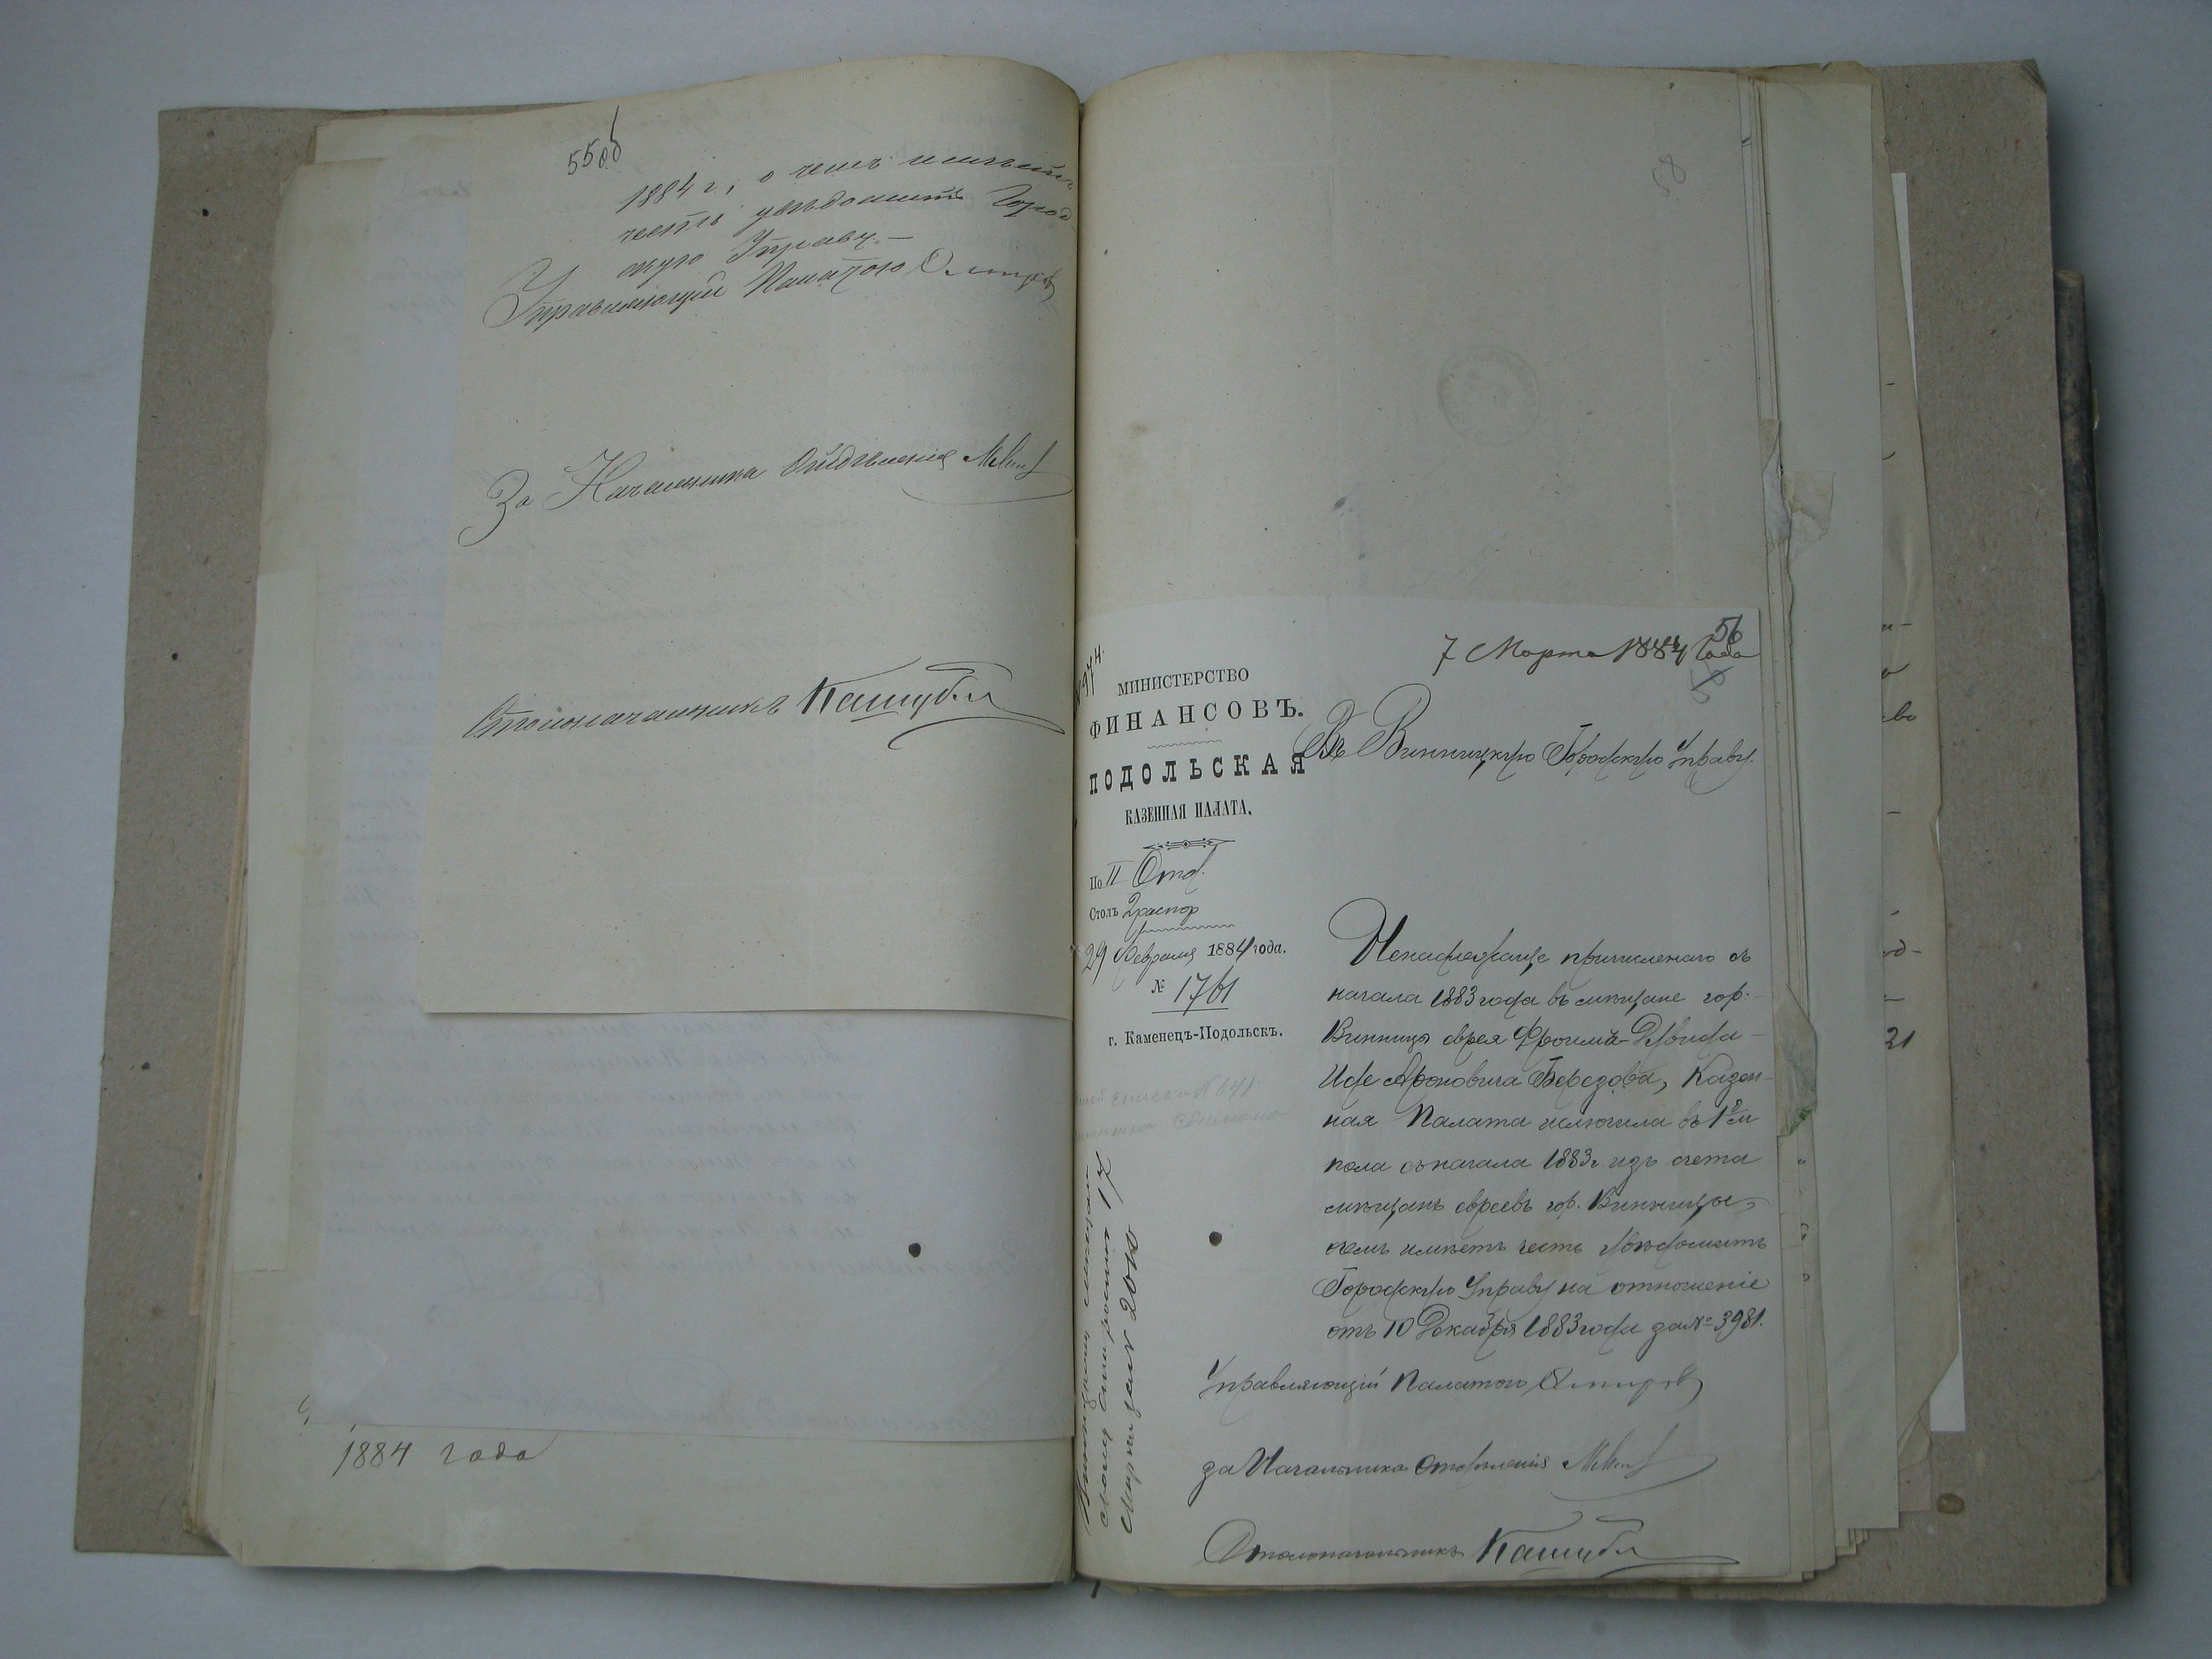 55 об
1884 г, о чемъ имѣетъ
честь увѣдомить Город
скую Управу. —
Управляющій Палатою
За Начальника Отдѣленія
Столоначальникъ
1884 года
58
56
7 Марта 1884 года
МИНИСТЕРСТВО
ФИНАНСОВЪ.
ПОДОЛЬСКАЯ
КАЗЕННАЯ ПАЛАТА.
По II Отд.
Столъ 2 распор
29 Февраля 1884 года.
№ 1761
г. Каменецъ-Подольскъ.
Въ Винницкую Городскую Управу.
причисленаго съ
начала 1883 года въ мѣщане гор.
Винницы еврея Фроима-Дувида-
Иде Ароновича Березова, Казен-
ная Палата исключила въ 1й м
пола съ начала 1883 г. изъ счета
мѣщанъ евреевъ гор. Винницы,
о чемъ имѣетъ честь увѣдомить
Городскую Управу на отношеніе
отъ 10 Декабря 1883 года за № 3981.
Управляющій Палатою
за Начальника Отдѣленія
Столоначальникъ